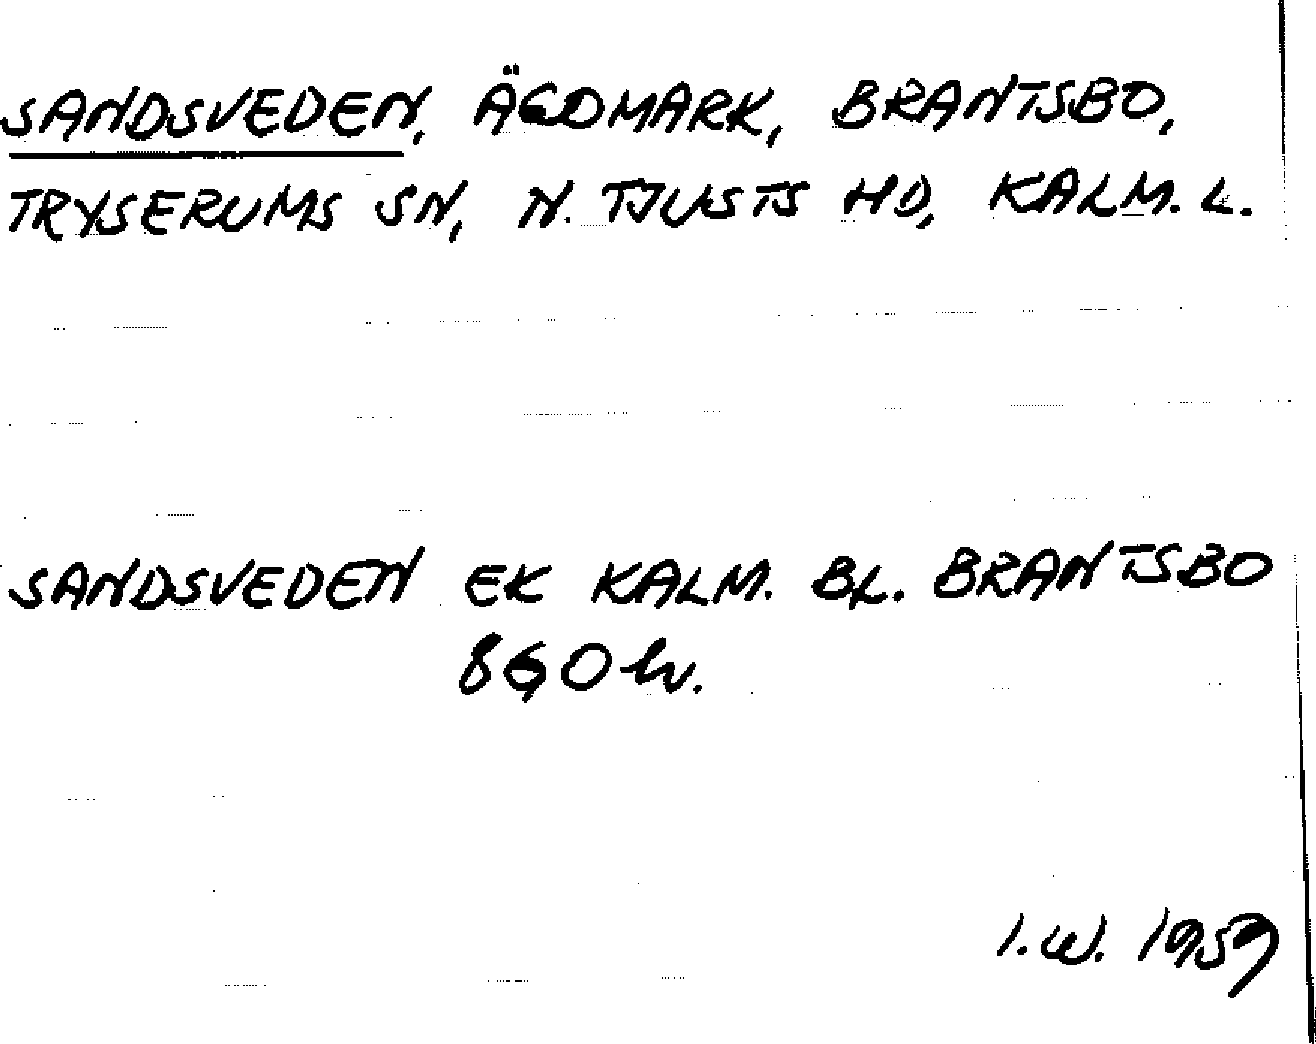 SANDSVEDEN, ÄGOMARK, BRANTSBO,
TRYSERUMS SN, N. TJUSTS HD, KALM. L.
SANDSVEDEN EK KALM. BL. BRANTSBO
I.W. 1959